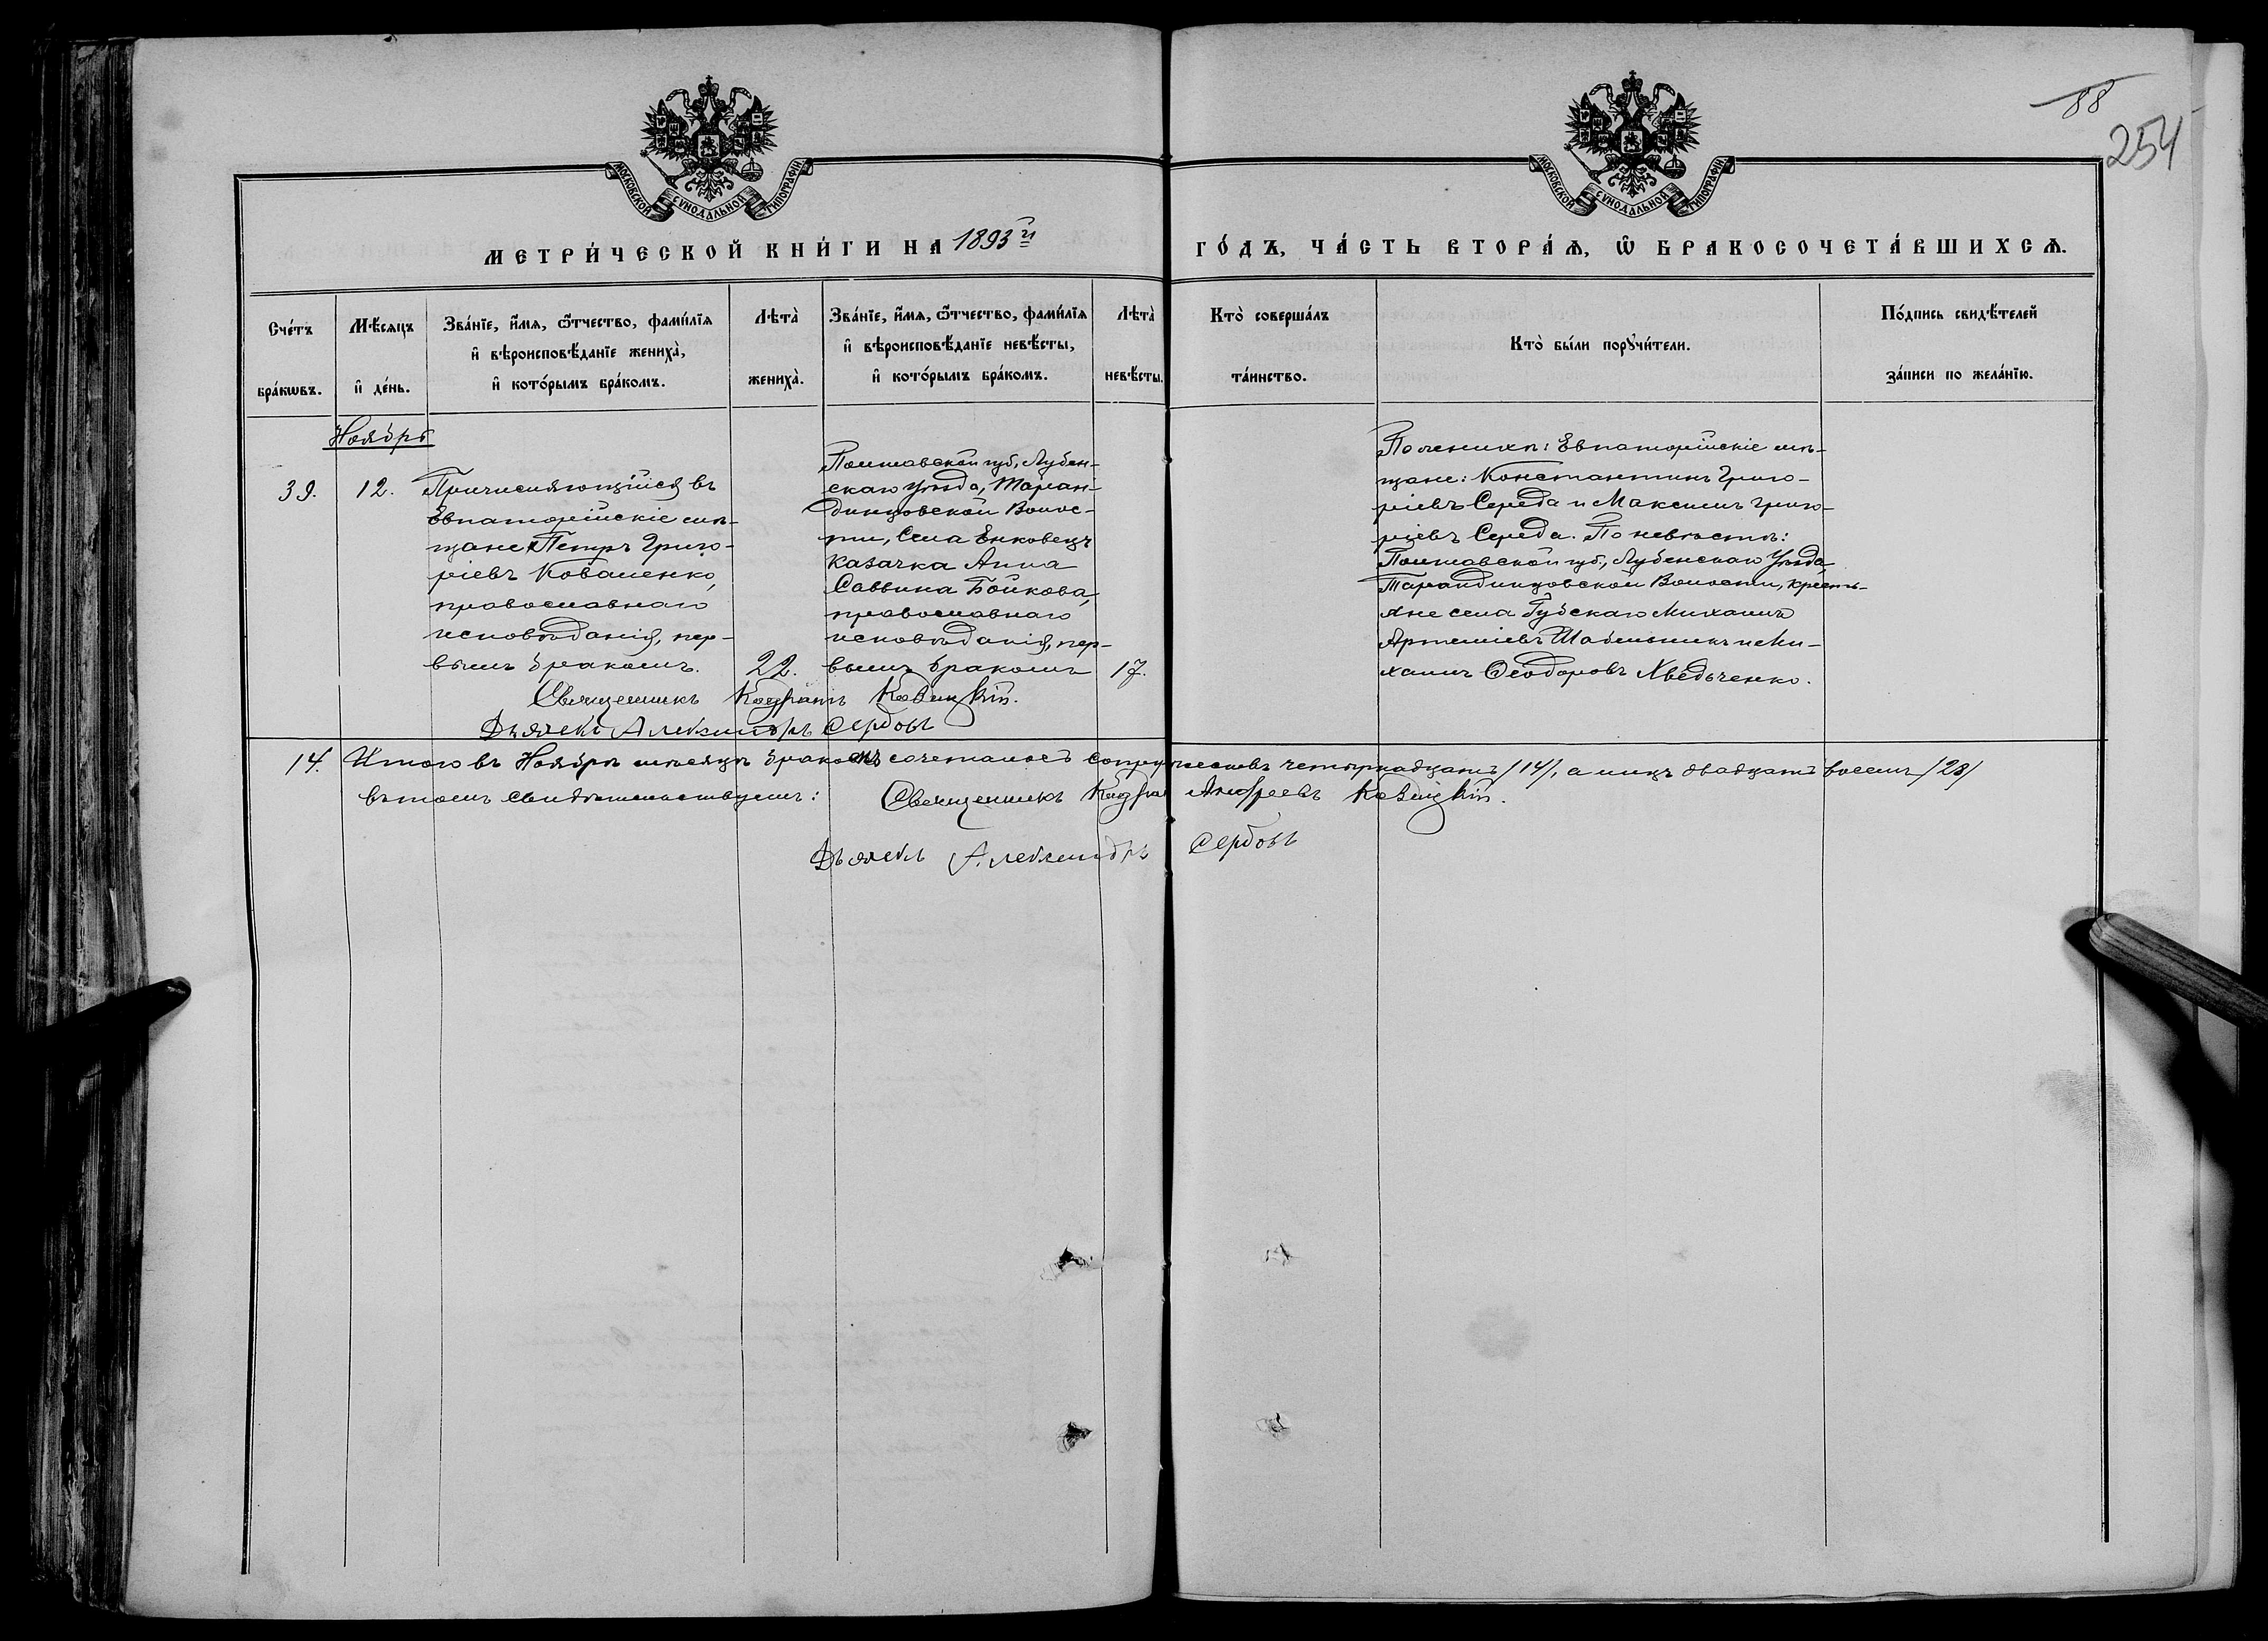 88
254
МОСКОВСКОЙ СѴНОДАЛЬНОЙ ТИПОГРАФІИ
МОСКОВСКОЙ СѴНОДАЛЬНОЙ ТИПОГРАФІИ
МЕТРИ́ЧЕСКОЙ КНИ́ГИ НА 1893й
ГО́ДЪ, ЧА́СТЬ ВТОРА́Ѧ, Ѽ БРАКОСОЧЕТА́ВШИХСѦ.
Сче́тъ
бра́кѡвъ.
Мѣ́сяцъ
и҆ де́нь.
Зва́нїе, и҆́мѧ, ѻ҆́тчество, фами́лїѧ
и҆ вѣроисповѣ́данїе жениха̀,
и҆ кото́рымъ бра́комъ.
Лѣта̀
жениха̀.
Зва́нїе, и҆́мѧ, ѻ҆́тчество, фами́лїѧ
и҆ вѣроисповѣ́данїе невѣ́сты,
и҆ кото́рымъ бра́комъ.
Лѣта̀
невѣ́сты.
Кто̀ соверша́лъ
та́инство.
Кто̀ бы́ли порꙋчи́тели.
По́дпись свидѣ́телей
за́писи по жела́нїю.
Ноябрь
39.
12.
Причисляющійся въ
Евпаторійскіе мѣ-
щане Петръ Григо-
ріевъ Коваленко,
православнаго
исповѣданія, пер-
вымъ бракомъ.
22.
Полтавской губ., Лубен-
скаго уѣзда, Таран-
динцовской Волос-
ти, Села Енковецъ
казачка Анна
Саввина Бойкова,
православнаго
исповѣданія, пер-
вымъ бракомъ
17.
По женихѣ: Евпаторійскіе мѣ-
щане: Константинъ Григо-
ріевъ Середа и Максимъ Григо-
ріевъ Середа. По невѣстѣ:
Полтавской губ., Лубенскаго Уѣзда,
Тарандинцовской Волости, кресть-
яне села Губскаго Михаилъ
Артеміевъ Шабельникъ и Ми-
хаилъ Ѳеодоровъ Хведченко.
Священникъ Кодратъ
Дьячекъ Александръ Сербовъ
14. Итого въ Ноябрѣ мѣсяцѣ бракомъ сочеталось супружествъ четырнадцать /14/, а лицъ двадцать восемь /28/
въ томъ свидѣтельствуемъ: Священникъ Андреевъ
Дьячекъ Александръ Сербовъ